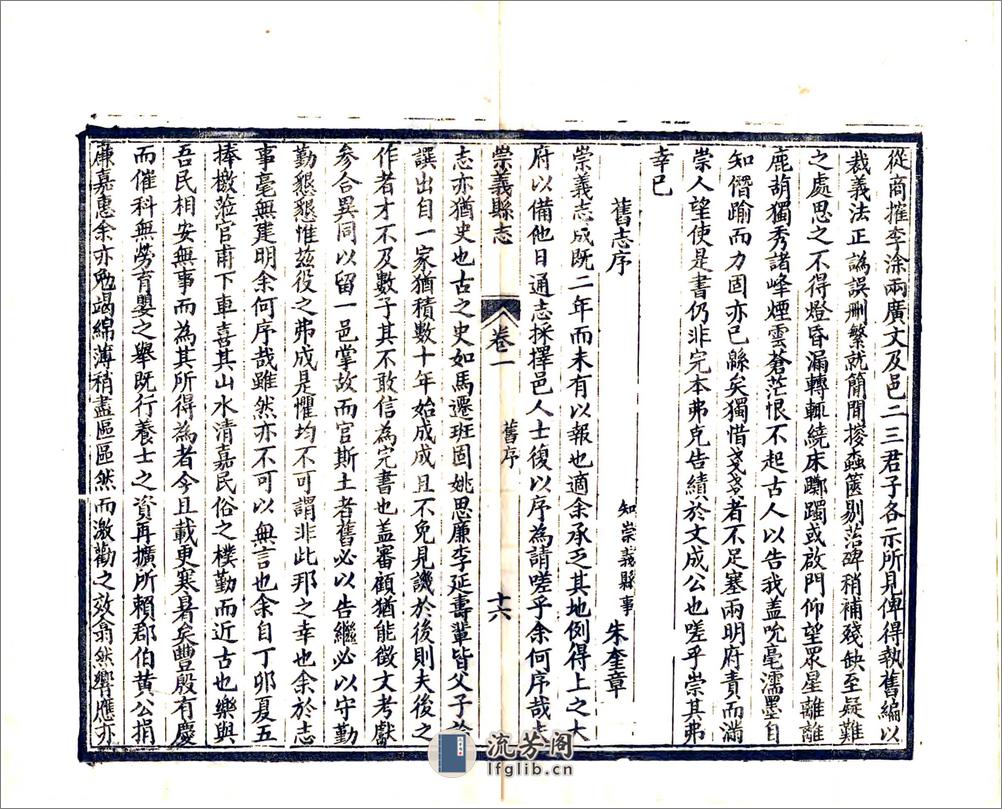 從商搉李涂兩廣文及邑二三君子各示所見俾得執舊編以
裁義法正譌誤删繁就簡間援蠧篋剔茫碑稍補殘缺至疑難
之處思之不得燈昏漏轉輒繞床躑躅或啟門仰望眾星離離
鹿葫獨秀諸峰煙雲蒼茫恨不起古人以告我蓋吮毫濡墨自
知僭踰而力固亦已緜矣獨惜戔戔者不足塞兩明府責而滿
崇人望使是書仍非完本弗克告績於文成公也嗟乎崇其弗
幸已
舊志序
知崇義縣事 朱奎章
崇義志成既二年而未有以報也適余承乏其地例得上之大
府以備他日通志採擇邑人士復以序為請嗟乎余何序哉夫
崇義縣志 卷一 舊序 十六
志亦猶史也古之史如馬遷班固姚思廉李延壽輩皆父子
譔出自一家猶積數十年始成成且不免見譏於後則夫後之
作者才不及數子其不敢信為完書也蓋審顧猶能徵文考獻
參合異同以留一邑掌故而官斯土者舊必以告繼必以守勤
勤懇懇惟茲役之弗成是懼均不可謂非此邦之幸也余於志
事毫無建明余何序哉雖然亦不可以無言也余自丁卯夏五
捧檄蒞官甫下車喜其山水清嘉民俗之樸勤而近古也樂與
吾民相安無事而為其所得為者今且載更寒暑矣豐殷有慶
而催科無勞育嬰之舉既行養士之資再擴所賴郡伯黃公捐
亷嘉惠余亦勉竭綿薄稍盡區區然而激勸之效翕然響應亦
流芳阁
lfglib.cn